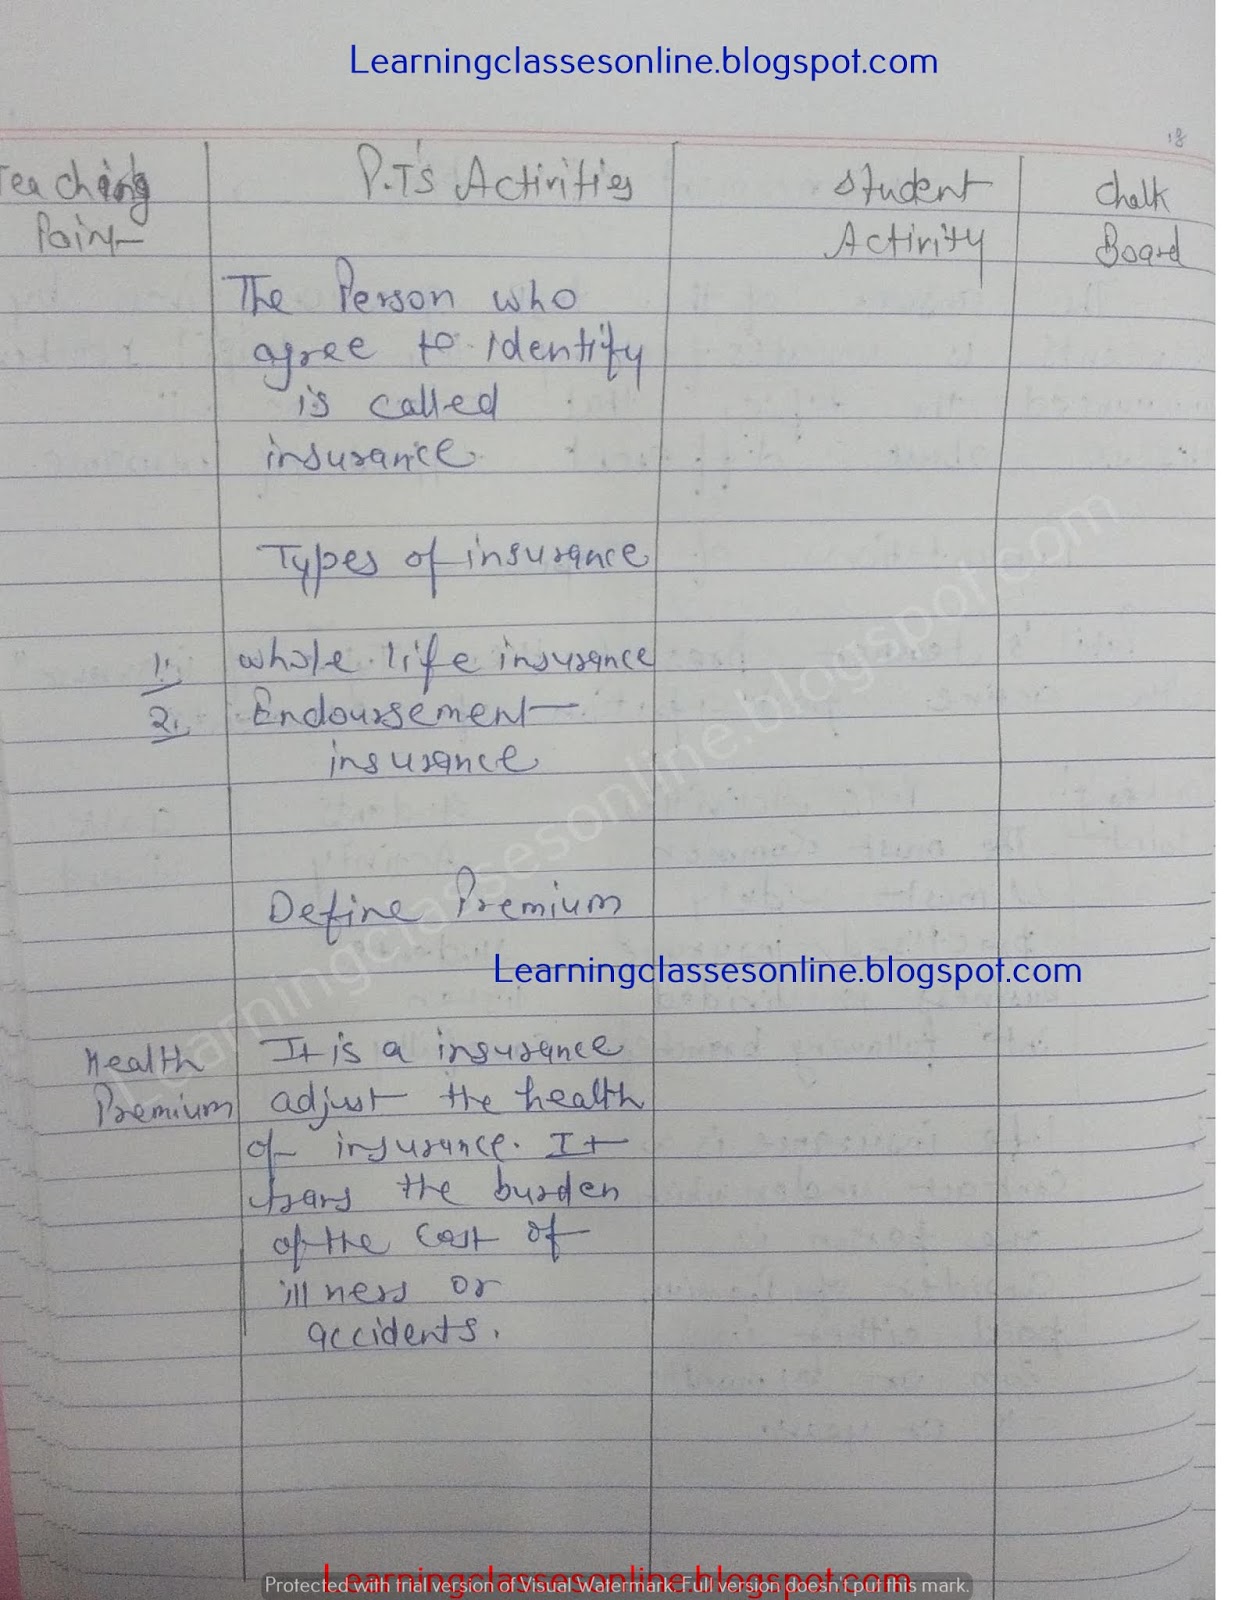 Learningclassesonline.blogspot.com
18
Teaching P.T's Activities Student Chalk
Point Activity Board
The Person who
agree to identify
is called
insurance
Types of insurance
1. whole life insurance
2. Endoursement
insurance
Define Premium
Learningclassesonline.blogspot.com
Health It is a insurance
Premium adjust the health
of insurance. It
the burden
of the cost of
illness or
accidents.
Learningclassesonline.blogspot.com
Learningclassesonline.blogspot.com
Protected with trial version of Visual Watermark. Full version doesn't put this mark.